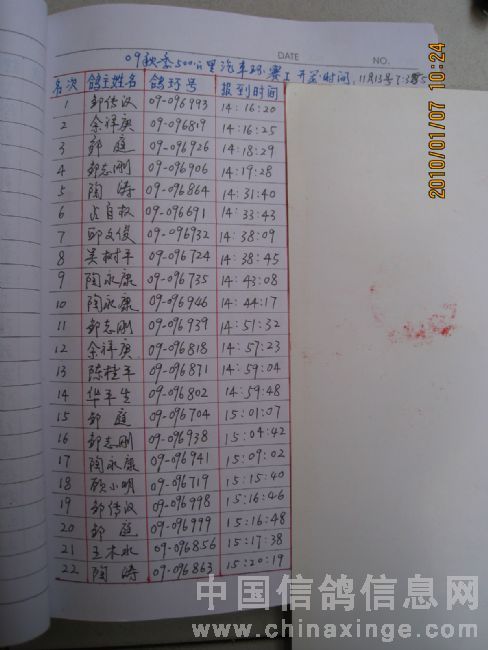 DATE NO.
09秋季500公里汽车环赛 开笼时间,11月13号7:35
名次 鸽主姓名 鸽环号 报到时间
1 邹传汉 09-096993 14:16:20
2 余祥庚 09-096819 14:16:25
3 邹庭 09-096926 14:18:29
4 邹志刚 09-096906 14:19:28
5 陶涛 09-096864 14:31:40
6 自权 09-096691 14:33:43
7 邱文俊 09-096932 14:38:09
8 吴树平 09-096724 14:38:45
9 陶永康 09-096735 14:43:08
10 陶永康 09-096946 14:44:17
11 邹志刚 09-096939 14:51:32
12 余祥庚 09-096818 14:57:23
13 陈桂平 09-096871 14:59:04
14 华平生 09-096802 14:59:48
15 邹庭 09-096704 15:01:07
16 邹志刚 09-096938 15:04:42
17 陶永康 09-096941 15:09:02
18 顾小明 09-096719 15:15:40
19 邹传汉 09-096998 15:16:46
20 邹庭 09-096999 15:16:48
21 王木水 09-096856 15:17:38
22 陶涛 09-096863 15:20:19
2010/01/07 10:24
中国信鸽信息网
www.chinaxinge.com